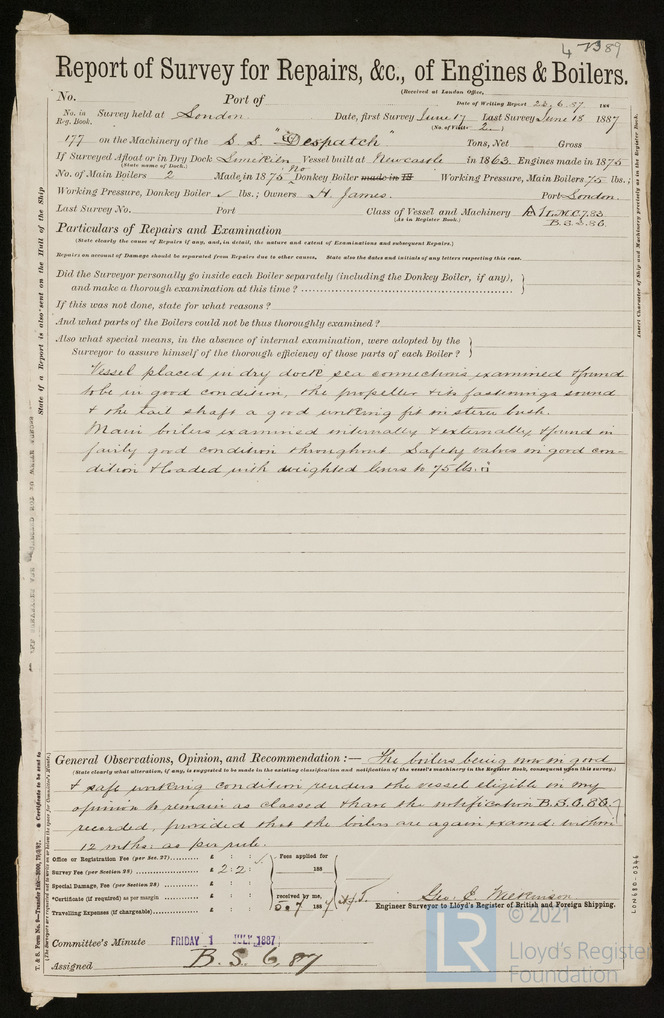 4 7389
Report of Survey for Repairs, &c., of Engines & Boilers.
(Received at London Office,
No. Port of Date of Writing Report 22.6.87 188
No. in Reg. Book. Survey held at London Date, first Survey June 17 Last Survey June 18 1887
(No. of Visits 2)
177 on the Machinery of the S.S. "Despatch" Tons, Net Gross
If Surveyed Afloat or in Dry Dock Limekiln Vessel built at Newcastle in 1863. Engines made in 1875
(State name of Dock.)
No. of Main Boilers 2 Made in 1875 No Donkey Boiler made in 18 Working Pressure, Main Boilers 75 lbs.;
Working Pressure, Donkey Boiler ✓ lbs.; Owners H. James. Port London.
Last Survey No. Port Class of Vessel and Machinery
(As in Register Book.) B.S.2.86.
Particulars of Repairs and Examination
(State clearly the cause of Repairs if any, and, in detail, the nature and extent of Examinations and subsequent Repairs.)
Repairs on account of Damage should be separated from Repairs due to other causes. State also the dates and initials of any letters respecting this case.
Did the Surveyor personally go inside each Boiler separately (including the Donkey Boiler, if any), and make a thorough examination at this time?
If this was not done, state for what reasons?
And what parts of the Boilers could not be thus thoroughly examined?
Also what special means, in the absence of internal examination, were adopted by the Surveyor to assure himself of the thorough efficiency of those parts of each Boiler?
Vessel placed in dry dock sea connections examined & found
to be in good condition, the propeller & its fastenings sound
& the tail shaft a good working fit in stern bush.
Main boilers examined internally & externally & found in
fairly good condition throughout Safety valves in good con-
dition & loaded with weighted levers to 75 lbs. □"
General Observations, Opinion, and Recommendation :— The boilers being now in good
(State clearly what alteration, if any, is suggested to be made in the existing classification and notification of the vessel's machinery in the Register Book, consequent upon this survey.)
& safe working condition renders the vessel eligible in my
opinion to remain as classed & have the notification B.S.6.86.
recorded, provided that the boilers are again examd. within
12 mths. as per rule.
Office or Registration Fee (per Sec. 27) £ : :
Survey Fee (per Section 28) £ 2 : 2 :
Special Damage, Fee (per Section 28) £ : :
*Certificate (if required) as per margin £ : :
Travelling Expenses (if chargeable) £ : :
Fees applied for
188
received by me,
5.7 1887
Geo. E. Wilkinson
Engineer Surveyor to Lloyd's Register of British and Foreign Shipping.
Committee's Minute FRIDAY 1 JULY, 1887
Assigned B.S. 6, 87
State if a Report is also sent on the Hull of the Ship
Insert Character of Ship and Machinery precisely as in the Register Book.
* Certificate to be sent to
LON680-0346
© 2021
LR
Lloyd's Register
Foundation